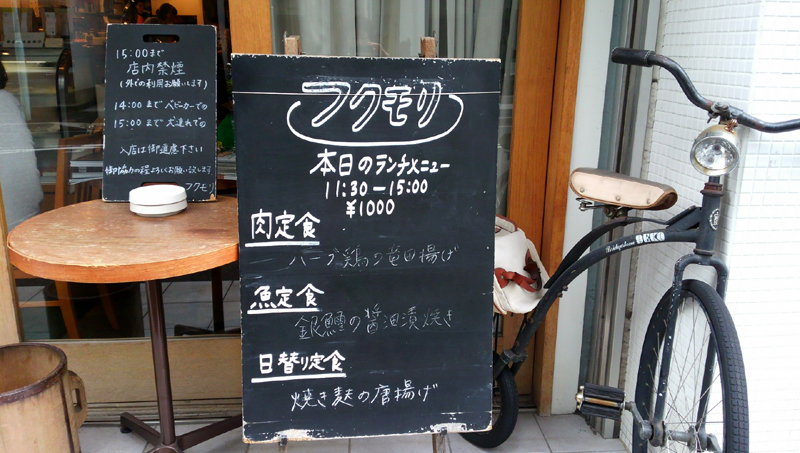 15:00まで
店内禁煙
(外での利用お願いします)
14:00まで ベビーカーでの
15:00まで 犬連れでの
入店は御遠慮下さい
御協力の程よろしくお願い致します
フクモリ
フクモリ
本日のランチメニュー
11:30-15:00
¥1000
肉定食
ハーブ鶏の竜田揚げ
魚定食
銀鱈の醤油漬焼き
日替り定食
焼き麩の唐揚げ
BEKO